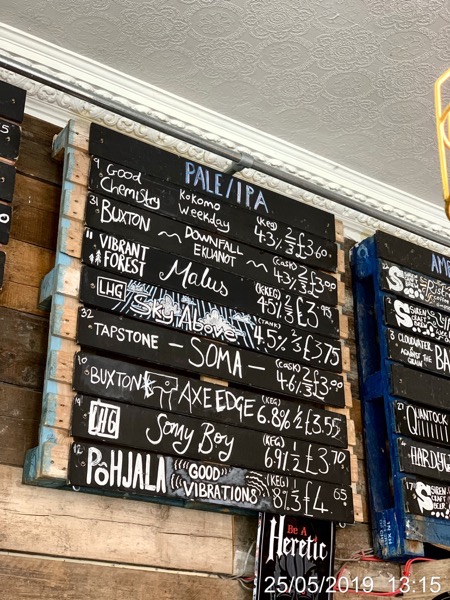 PALE/IPA
9 Good Chemistry Kokomo Weekday (Keg) 4.3% 2/3 £3.60
31 BUXTON ~ DOWNFALL EKUANOT ~ (CASK) 4.3% 2/3 £3.00
11 VIBRANT FOREST Malus (KEG) 4.5% 2/3 £3
LHG Sky Above (TANK) 4.5% 2/3 £3.75
32 TAPSTONE - SOMA - (CASK) 4.6% 2/3 £3.00
10 BUXTON AXE EDGE (KEG) 6.8% 1/2 £3.55
LHG Sony Boy (KEG) 6.9% 1/2 £3.70
12 PÕHJALA ((GOOD VIBRATIONS)) (KEG) 8% 1/2 £4.65
AM
SIREN CRAFT
CLOUDWATER AGAINST THE GRAIN BA
QUANTOCK
HARDY
SIREN CRAFT BEER
BE A
Heretic
25/05/2019 13:15